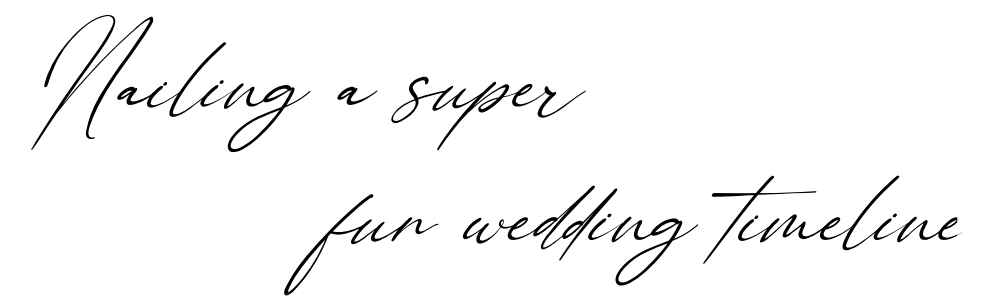 Nailing a super
fun wedding timeline